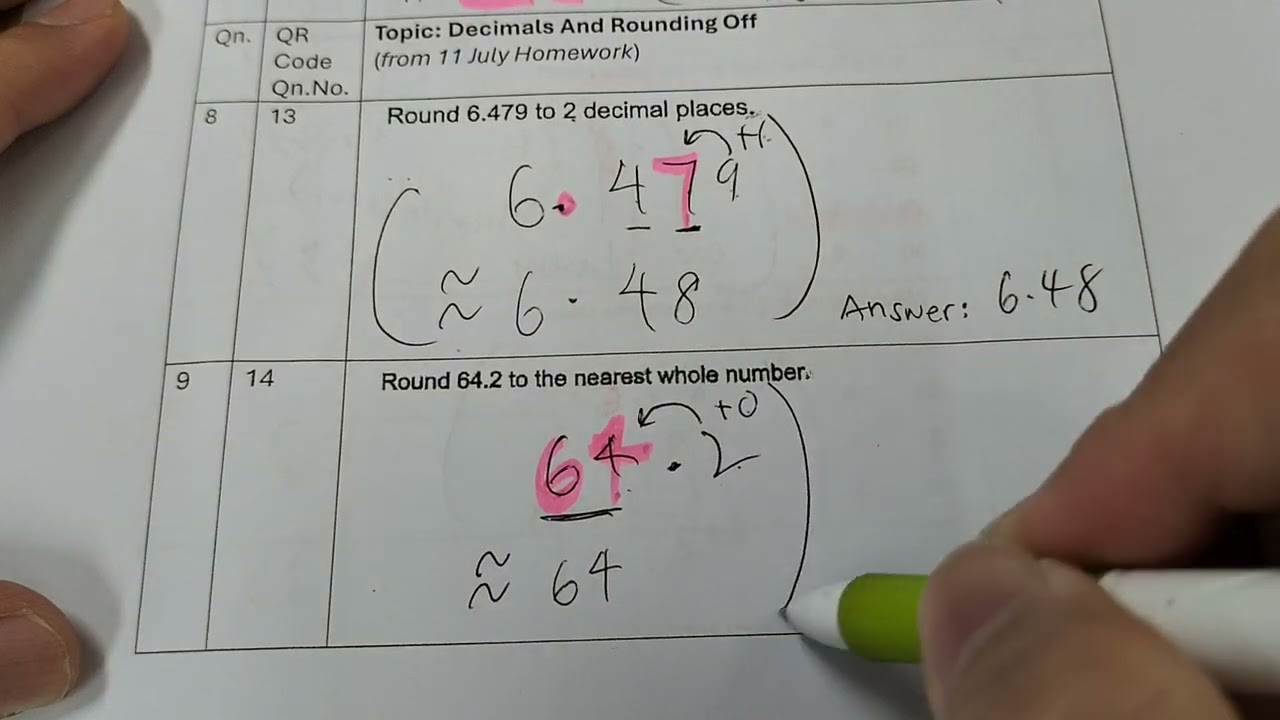 Qn.
QR Code Qn.No.
Topic: Decimals And Rounding Off
(from 11 July Homework)
8
13
Round 6.479 to 2 decimal places.
+1
6.479
≈ 6.48
Answer: 6.48
9
14
Round 64.2 to the nearest whole number.
+0
64.2
≈ 64